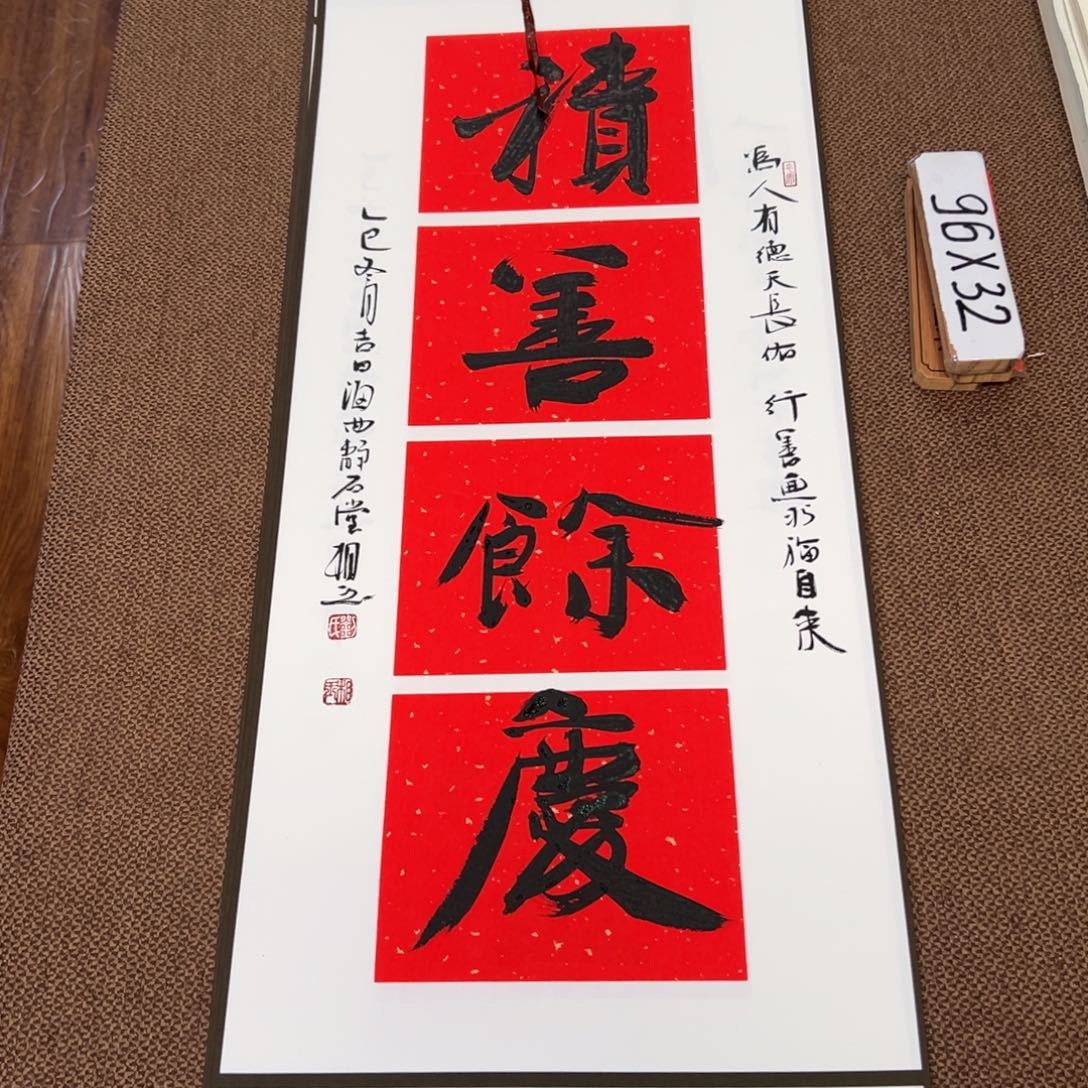 積
善
餘
慶
為人有德天長佑 行善無求福自来
乙巳冬月吉日海西静石堂
96X32